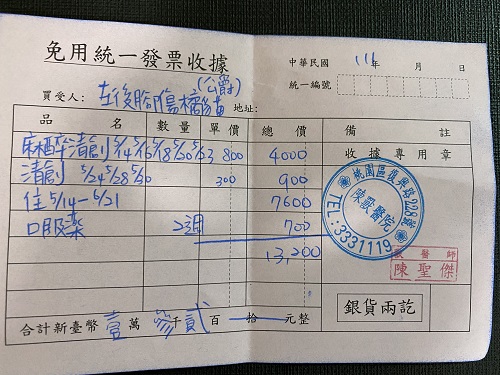 免用統一發票收據
中華民國 111年 月 日
統一編號
(公爵)
買受人： 左後腳傷橘貓 地址：
品名 數量 單價 總價 備註
麻醉清創 5/14 5/16 5/18 5/20 5/23 800 4000 收據專用章
清創 5/24 5/28 5/30 300 900
住 5/14-6/21 7600
口服藥 2週 700
13,200
桃園區復興路228號
獸醫院
TEL:3331119
獸醫師
陳聖傑
銀貨兩訖
合計新臺幣 壹萬 參千貳百 拾 元整